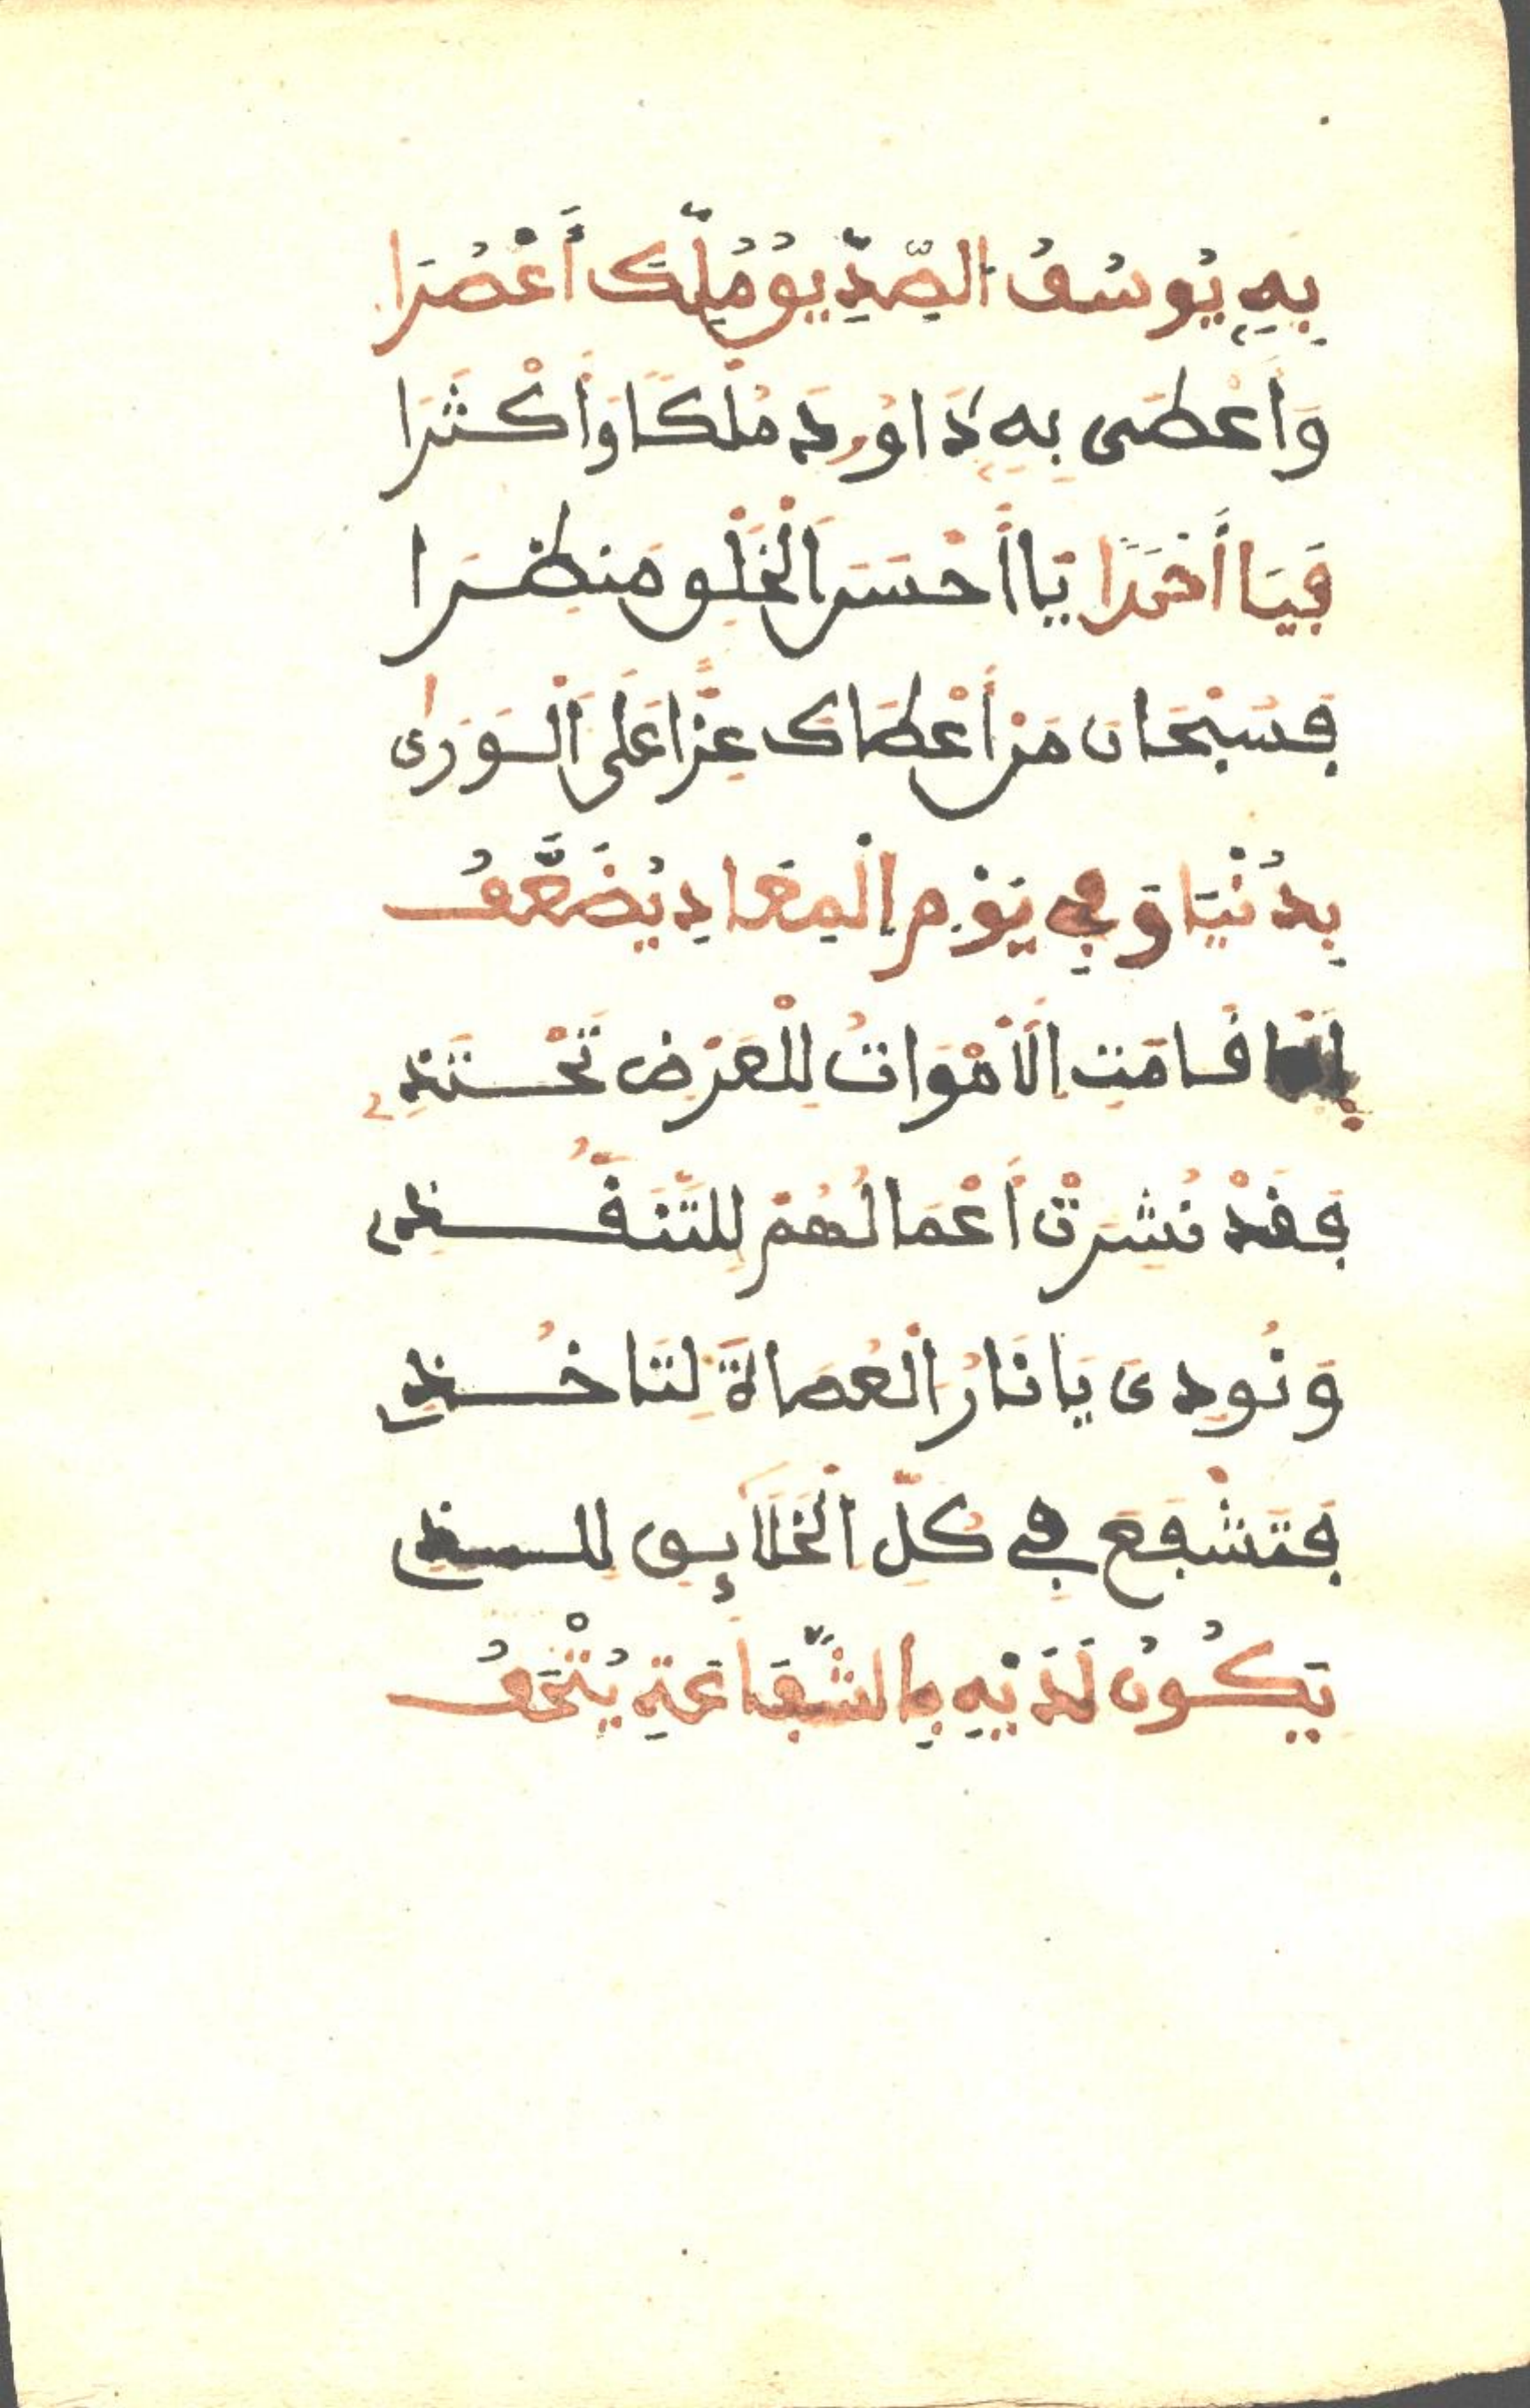 بِهِ يُوسُفُ الصِّدِّيقُ مُلِّكَ أَعْصُرَا
وَأَعْطَى بِهِ دَاوُودَ مُلْكًا وَأَكْثَرَا
فَيَا أَحْمَدًا يَا أَحْسَنَ الْخَلْقِ مَنظَرَا
فَسُبْحَانَ مَنْ أَعْطَاكَ عِزًّا عَلَى الْوَرَى
بِدُنْيَا وَفِي يَوْمِ الْمَعَادِ يُضَعَّفُ
إِذَا قَامَتِ الْأَمْوَاتُ لِلْعَرْضِ تَحْتَذِ
فَقَدْ نُشِرَتْ أَعْمَالُهُمْ لِلتَّنَفُّذِ
وَنُودِيَ يَا نَارُ الْعُصَاةَ لَنَا خُذِ
فَتَشْفَعُ فِي كُلِّ الْخَلَائِقِ
يَكُونُ لَدَيْهِ بِالشَّفَاعَةِ يُتْحَفُ